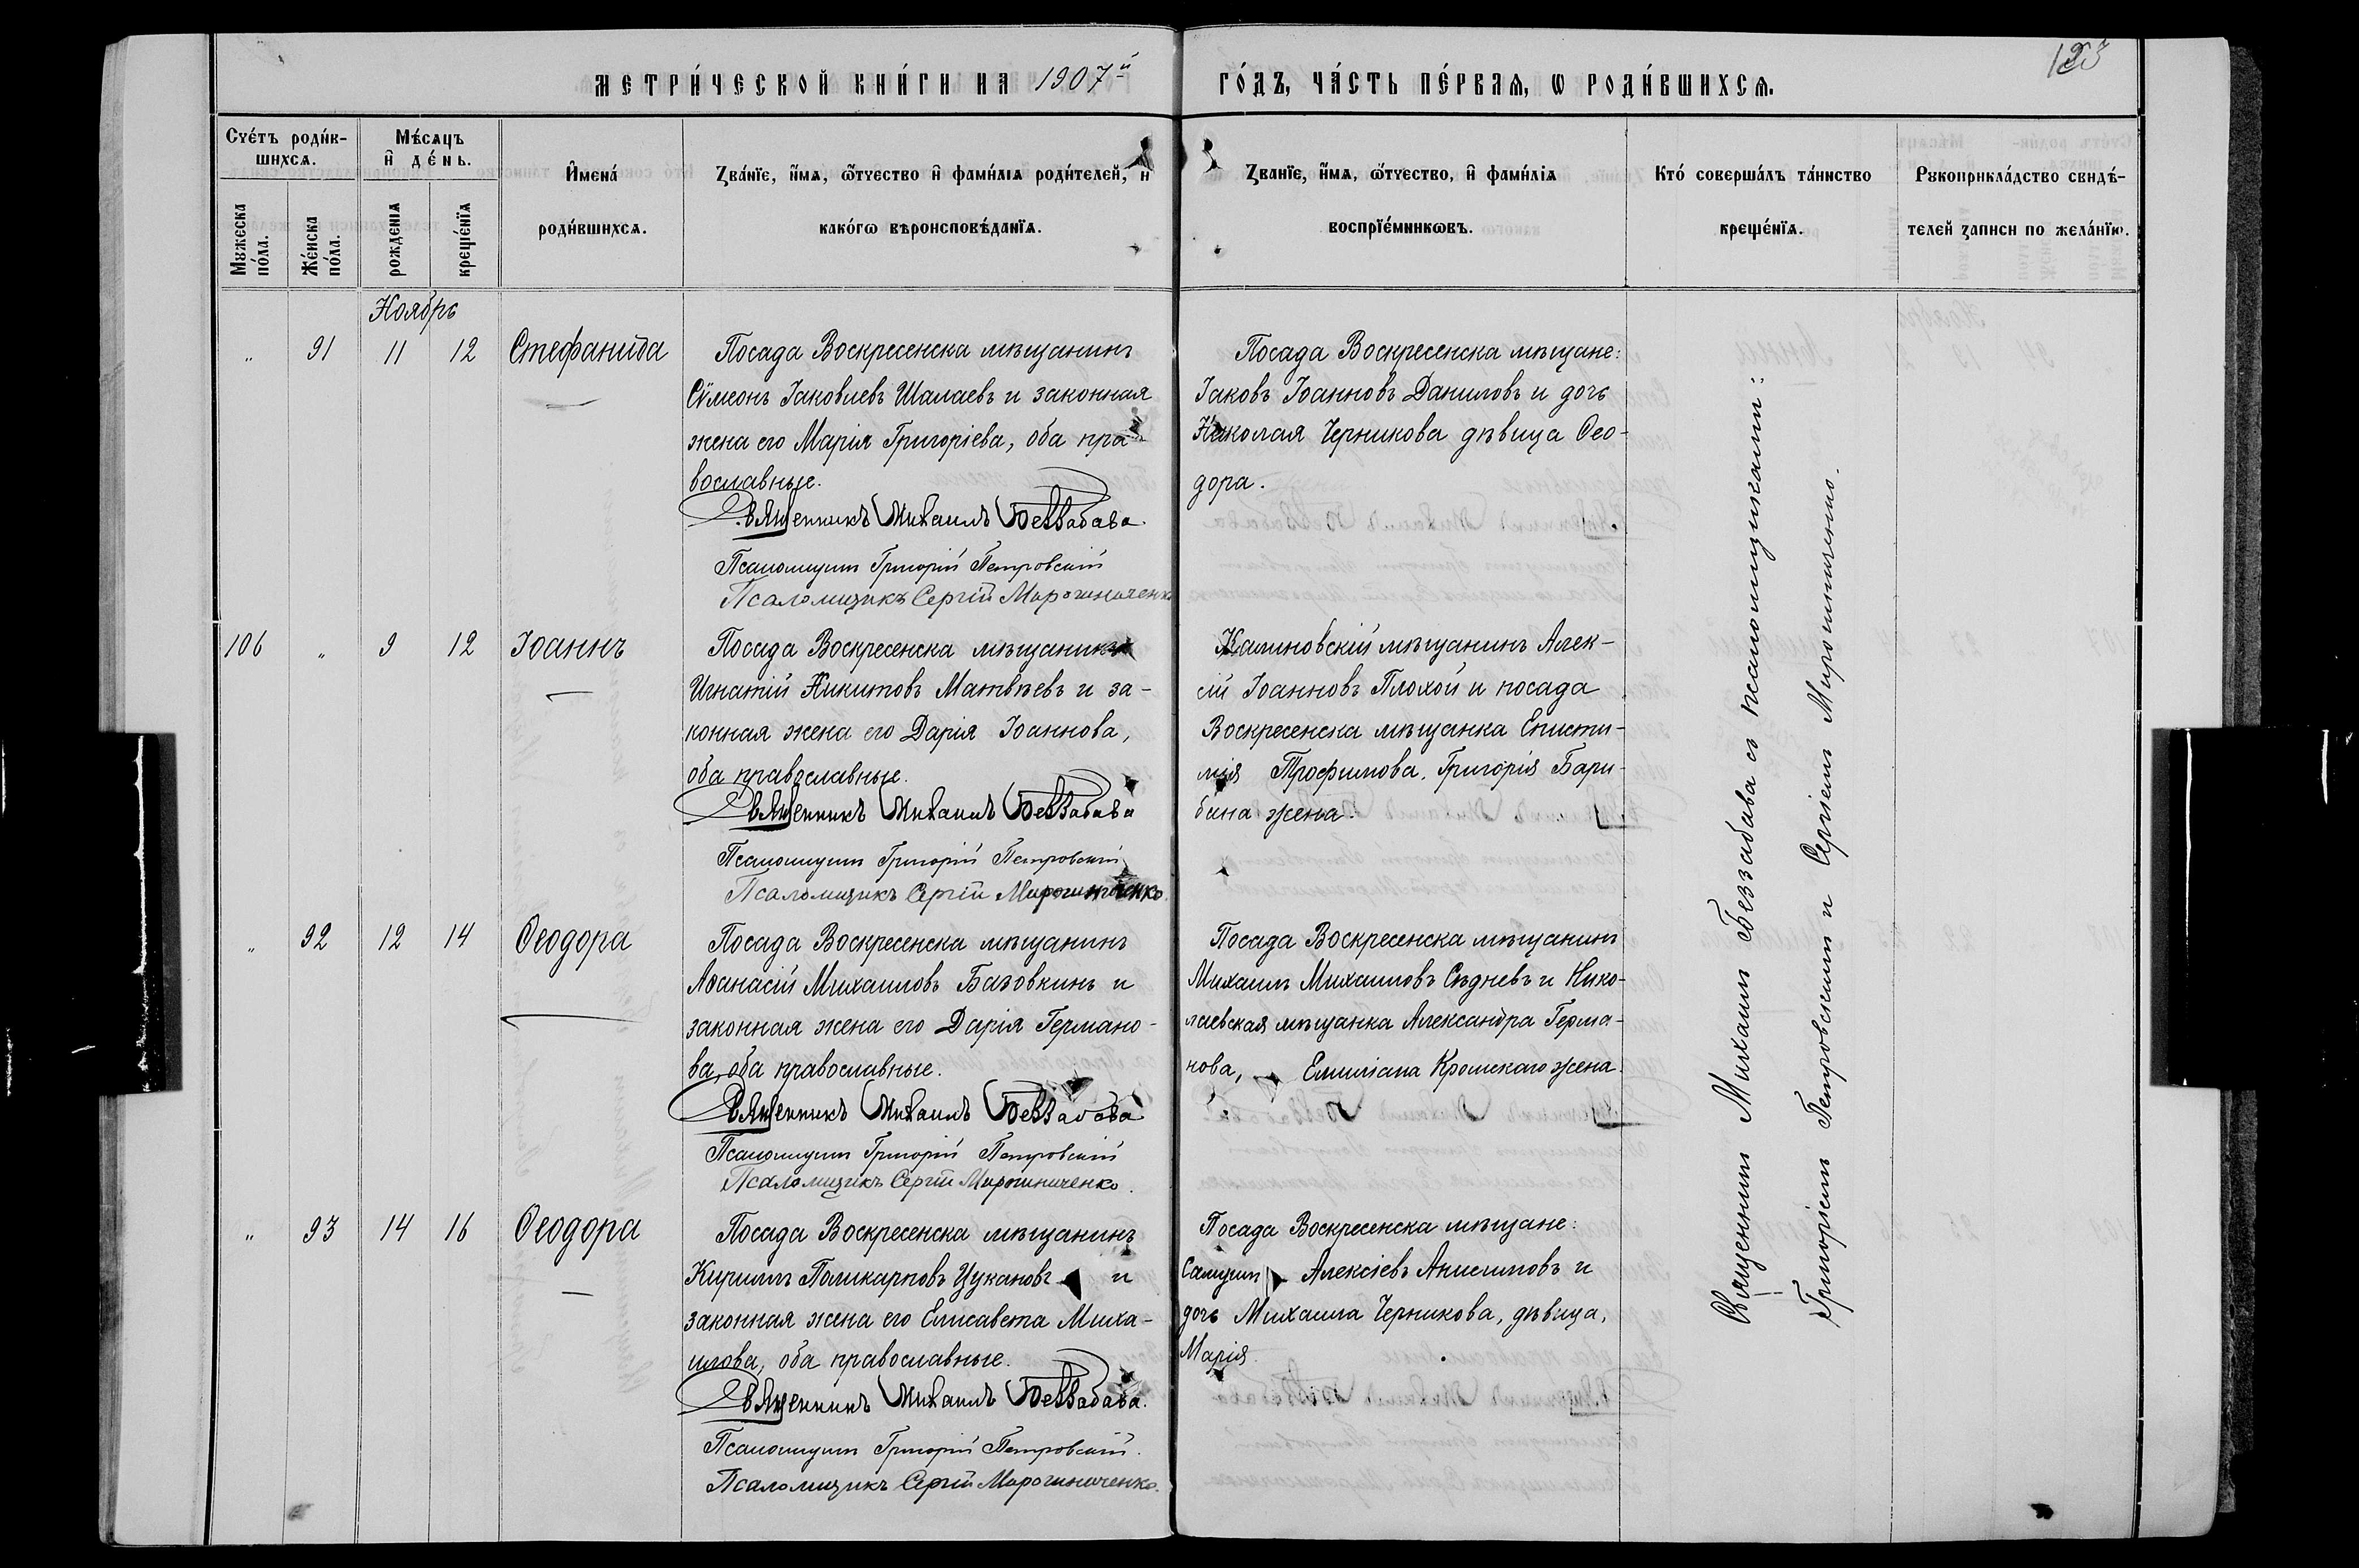 МЕТРИ́ЧЕСКОЙ КНИ́ГИ НА 1907й
ГО́ДЪ, ЧА́СТЬ ПЕ́РВАѦ, Ѡ РОДИ́ВШИХСѦ.
Сче́тъ роди́в-
шихсѧ.
Мꙋжеска
по́ла.
Же́нска
по́ла.
Мѣ́сѧцъ
и҆ де́нь.
рожденїѧ
креще́нїѧ
И҆мена́
роди́вшихсѧ.
Зва́нїе, и҆́мѧ, ѻ҆́тчество и҆ фами́лїѧ роди́телей, и
како́гѡ вѣроисповѣ́данїѧ.
Зва́нїе, и҆́мѧ, ѻ҆́тчество, и҆ фами́лїѧ
воспрїе́мникѡвъ.
Кто́ соверша́лъ та́инство
креще́нїѧ.
Рꙋкоприкла́дство свидѣ́-
телей записи по жела́нїю.
Ноябрь
„ 91 11 12 Стефанида
Посада Воскресенска мѣщанинъ
Сѵмеонъ Іаковлевъ Шалаевъ и законная
жена его Марія Григоріева, оба пра-
вославные.
Священникъ Михаилъ Беззабава.
Псаломщикъ Григорій Петровскій
Псаломщикъ Сергій Мирошниченко
Посада Воскресенска мѣщане:
Іаковъ Іоанновъ Даниловъ и дочь
Николая Черникова дѣвица Ѳео-
дора.
106 „ 9 12 Іоаннъ
Посада Воскресенска мѣщанинъ
Игнатій Никитовъ Матвѣевъ и за-
конная жена его Дарія Іоаннова,
оба православные.
Священникъ Михаилъ Беззабава
Псаломщикъ Григорій Петровскій
Псаломщикъ Сергій Мирошниченко.
Калиновскій мѣщанинъ Алек-
сій Іоанновъ Плохой и посада
Воскресенска мѣщанка Еписти-
мія Трофимова, Григорія Бари-
бина жена.
„ 92 12 14 Ѳеодора
Посада Воскресенска мѣщанинъ
Аѳанасій Михаиловъ Базовкинъ и
законная жена его Дарія Германо-
ва, оба православные.
Священникъ Михаилъ Беззабава
Псаломщикъ Григорій Петровскій
Псаломщикъ Сергій Мирошниченко.
Посада Воскресенска мѣщанинъ
Михаилъ Михаиловъ Сѣдневъ и Нико-
лаевская мѣщанка Александра Герма-
нова, Емиліана Кромскаго жена.
„ 93 14 16 Ѳеодора
Посада Воскресенска мѣщанинъ
Кириллъ Поликарповъ Цукановъ и
законная жена его Елисавета Миха-
илова, оба православные.
Священникъ Михаилъ Беззабава.
Псаломщикъ Григорій Петровскій.
Псаломщикъ Сергій Мирошниченко.
Посада Воскресенска мѣщане:
Самуилъ Алексіевъ Анисимовъ и
дочь Михаила Черникова, дѣвица,
Марія.
Священникъ Михаилъ Беззабава съ псаломщиками:
Григоріемъ Петровскимъ и Сергіемъ Мирошниченко.